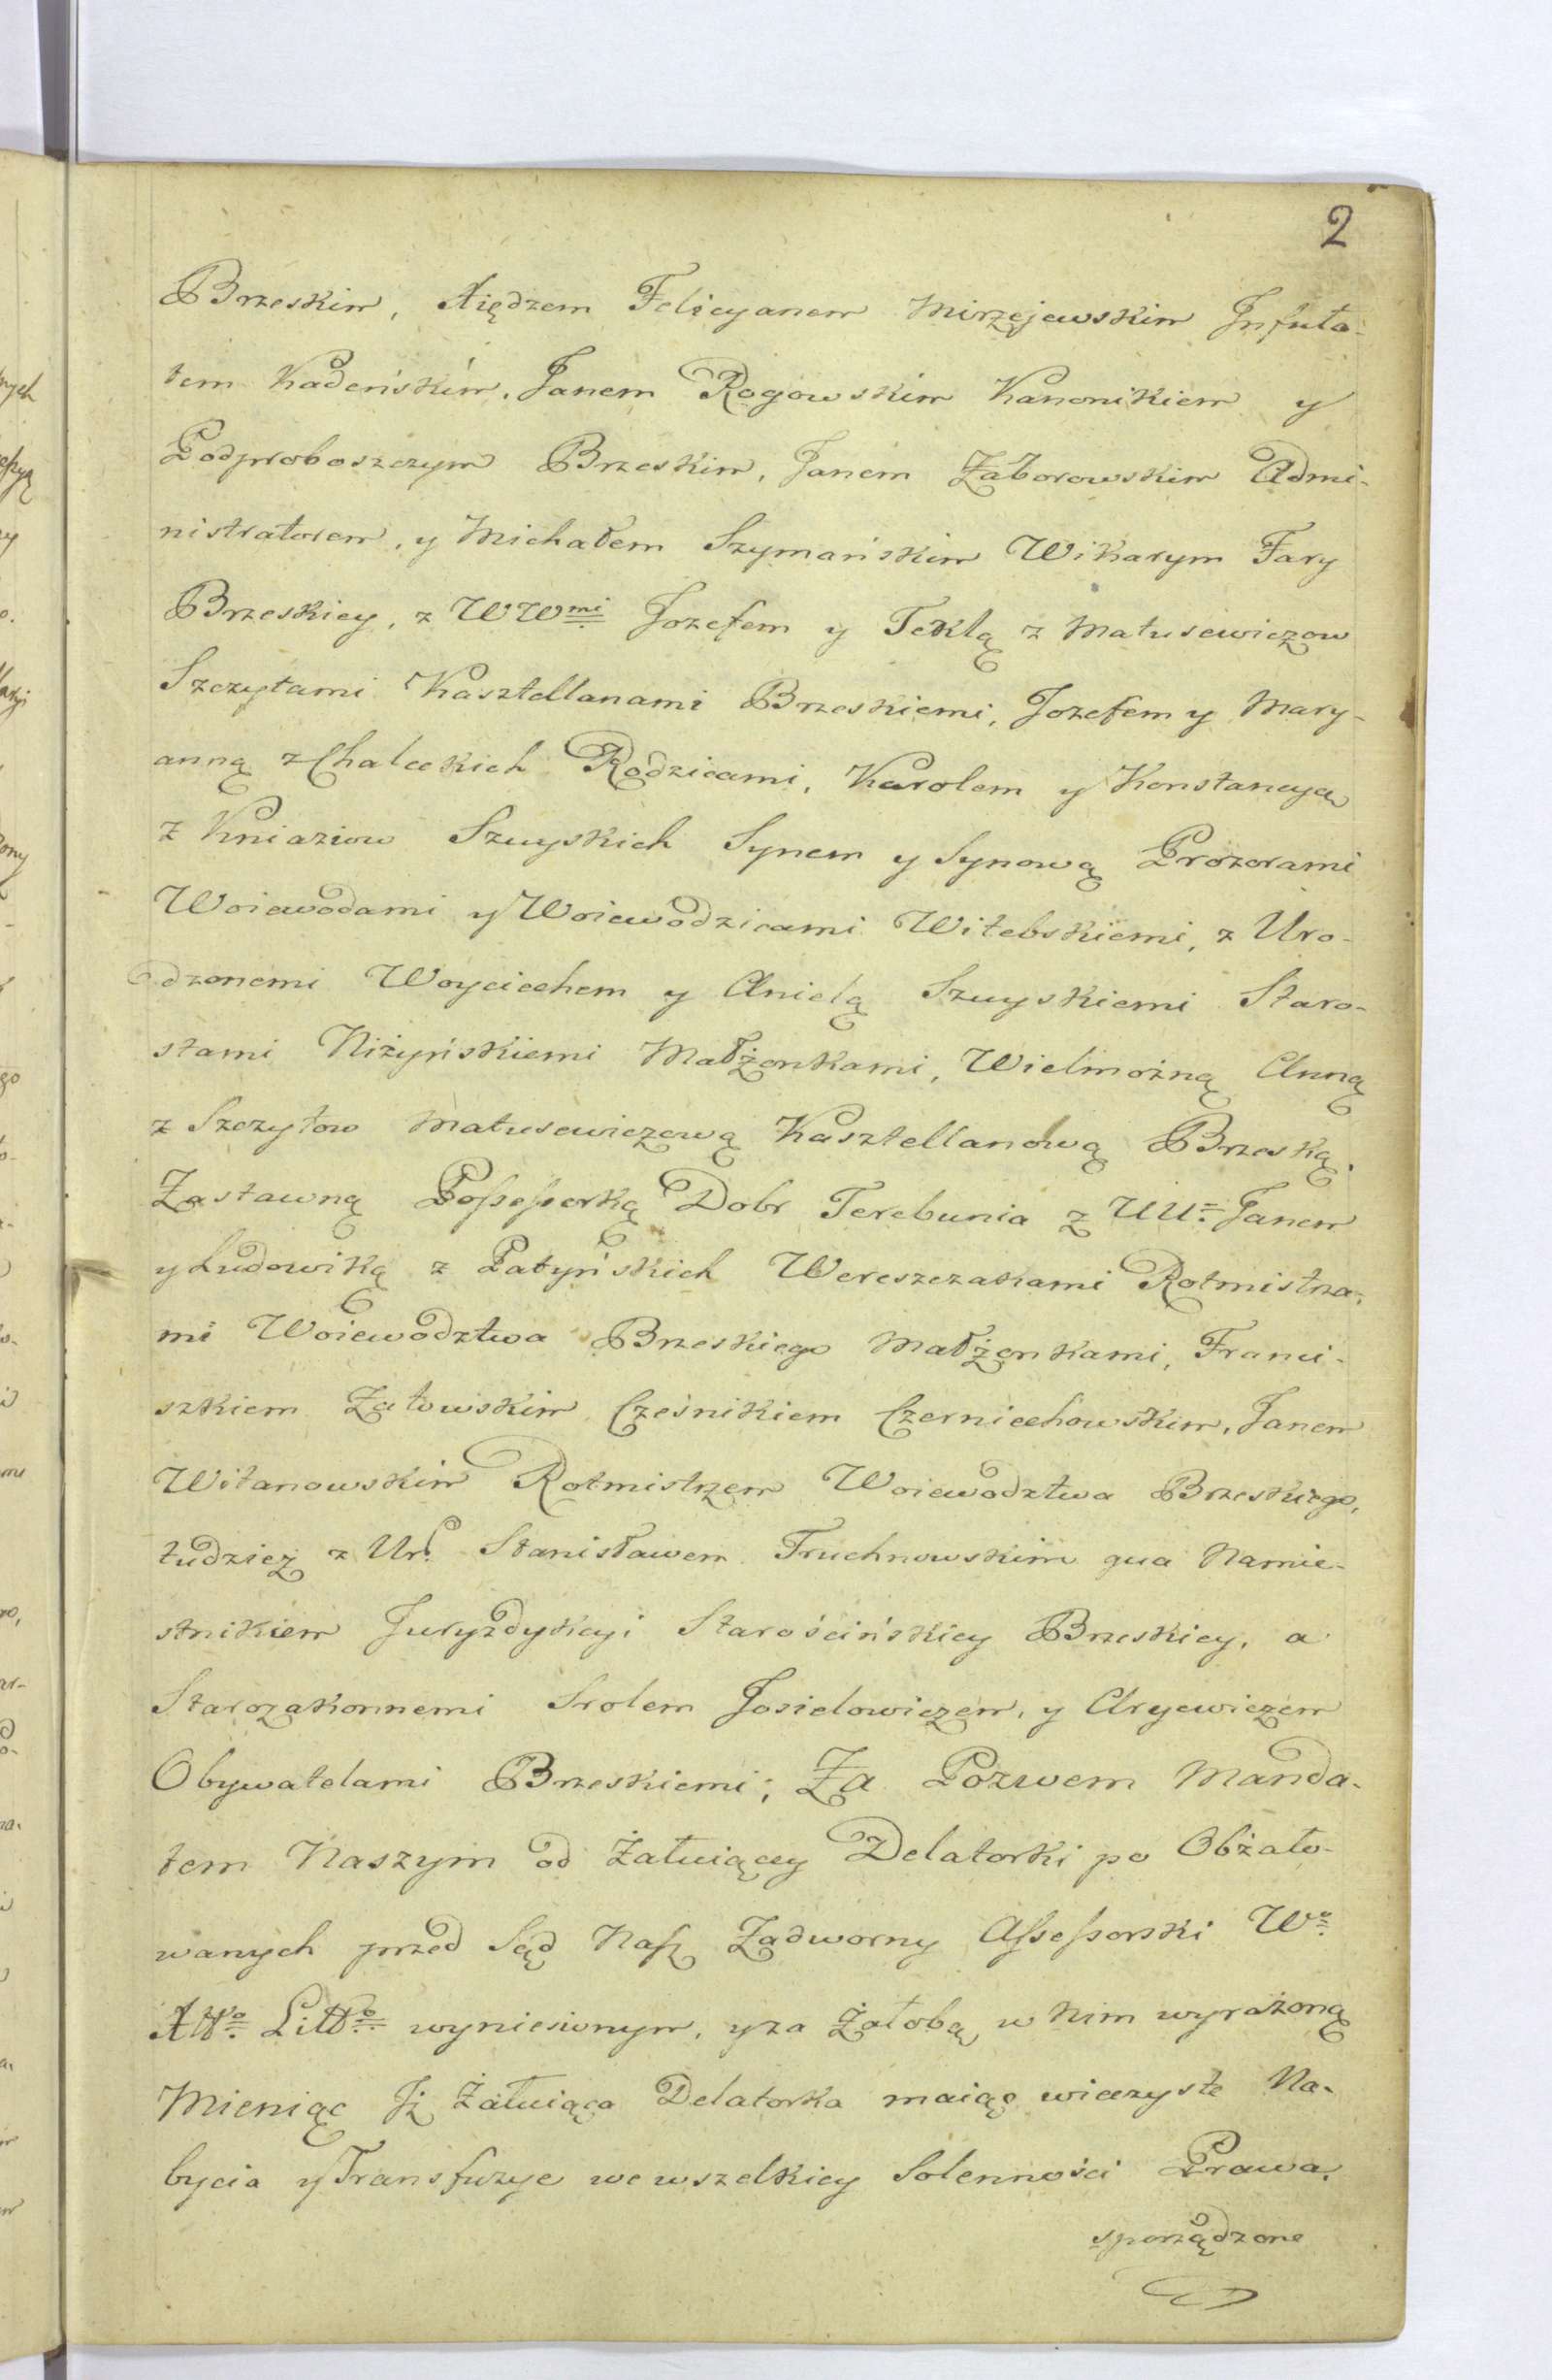 2
Brzeskim, Xiędzem Felicyanem Mirzejewskim Infuła-
tem Kadeńskim, Janem Rogowskim Kanonikiem y
Podproboszczym Brzeskim, Janem Zaborowskim Admi-
nistratorem, y Michałem Szymańskim Wikarym Fary
Brzeskiey, z WWmi Jozefem y Teklą z Matusewiczow
Szczytami Kasztellanami Brzeskiemi, Jozefem y Mary-
anną z Chaleckich Rodzicami, Karolem y Konstancyą
z Kniaziow Szuyskich Synem y Synową Prozorami
Woiewodami y Woiewodzicami Witebskiemi, z Uro-
dzonemi Woyciechem y Anielą Szuyskiemi Staro-
stami Niżyńskiemi Małżonkami, Wielmożną Anną
z Szczytow Matusewiczową Kasztellanową Brzeską.
Zastawną Possessorką Dobr Terebunia z UU. Janem
y Ludowiką z Patyńskich Wereszczakami Rotmistrza-
mi Woiewodztwa Brzeskiego Małżonkami, Franci-
szkiem Załowskim Cześnikiem Czerniechowskim, Janem
Witanowskim Rotmistrzem Woiewodztwa Brzeskiego,
tudzież z Ur. Stanisławem Truchnowskim qua Namie-
stnikiem Juryzdykcyi Starościńskiey Brzeskiey, a
Starozakonnemi Srolem Josielowiczem, y Aryewiczem
Obywatelami Brzeskiemi; Za Pozwem Manda-
tem Naszym od Żałuiącey Delatorki po Obżało-
wanych przed Sąd Nasz Zadworny Assessorski Wo
XWo Littgo wyniesionym, y za Żałobą w Nim wyrażoną
Mieniąc Jż Żałuiąca Delatorka maiąc wieczyste Na-
bycia y Transfuzye we wszelkiey Solenności Prawa.
sporządzone